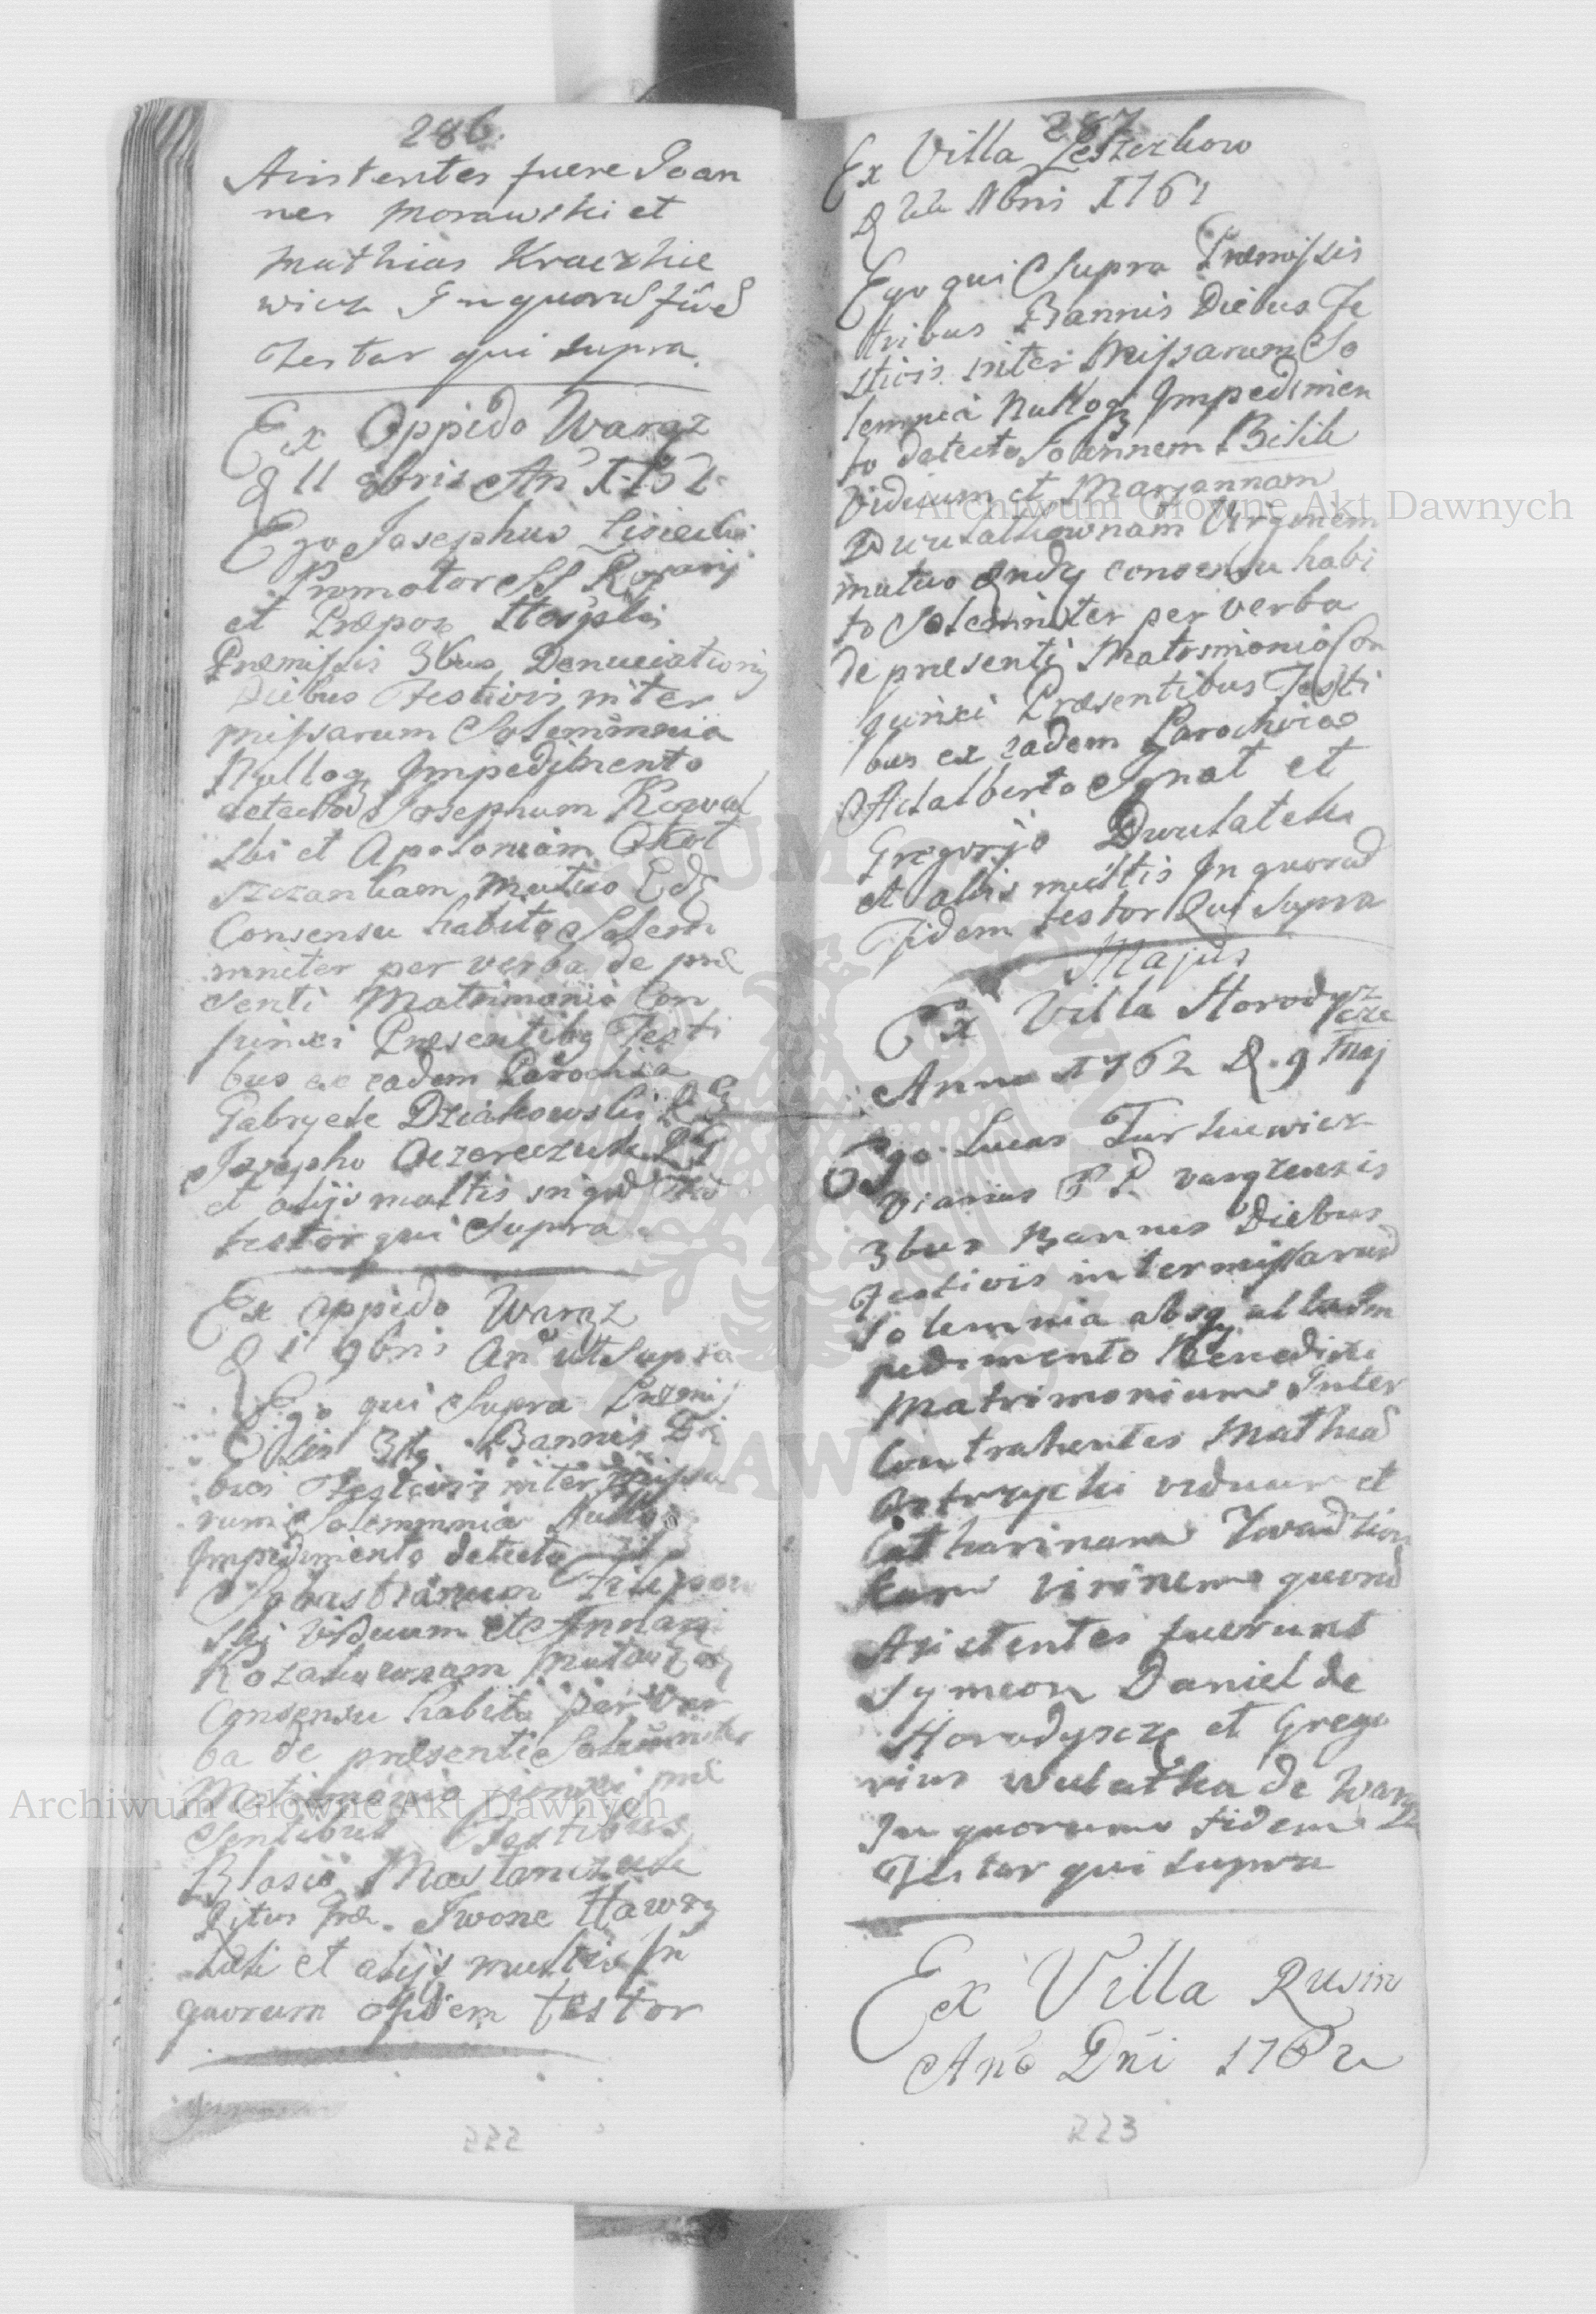 286.
Asistentes fuere Joan
nes Morawski et
Mathias Kraczkie
wicz In quorū fidē
Testor qui supra.
Ex Oppido Waręz
D 11 8bris An 1761
Ego Josephus Lisiecki
Promotor SS Rosarij
et Præpos Hosplis
Præmissis 3bus Denunciationis
Diebus Festivis inter
missarum Solemnia
Nulloq Impedimento
detecto Josephum Kowal
ski et Apoloniam
Mutuo
Consensu habito Solem
mniter per verba de præ
senti Matrimonio Con
junxi Præsentibq Testi
bus ex eadem Parochia
Gabryele Dziakowski
Josepho
et alijs multis in quo fid
testor qui Supra
Ex oppido Waręz
D 1 9bris An ut Supra
Ego qui Supra Præmis
sis 3bq Bannis Die
bus Festivis inter Missa
rum Solemnia Nullo
Impedimento detecto
Sebastianum
ski Viduum et
mutuo
Consensu habito per ver
ba de præsenti Solemniter
Matrimonio junxi præ
sentibus Testibus
Blasio
Ritus Græ. Iwone
et alijs multis In
quorum fidem testor
222
287
Ex Villa Leszczkow
D 22 Nbris 1761
Ego qui Supra Præmissis
tribus Bannis Diebus Fe
stivis inter Missarum So
lemnia Nulloq Impedimen
to detecto Joannem Bilik
Viduum et Maryannam
Virginem
mutuo consensu habi
to Solemniter per verba
de præsenti Matrimonio Con
junxi Præsentibus Testi
bus ex eadem Parochia
Adalberto Ignat et
Gregorjo
et alijs multis In quorū
Fidem testor Qui Supra
Majus
Ex Villa Horodyszcze
Anno 1762 D. 9 Maj
Ego Lucas Turkiewicz
Vicarius P P. varęzensis
3bus Bannis Diebus
Festivis inter missarū
solemnia absq ullo Im
pedimento Benedixi
Matrimonium Inter
Contrahentes Matheū
Ostrzycki viduum et
Catharinam
virginem quorū
Asistentes fuerunt
Symeon Daniel de
Horodyszcze et Grego
rius de Waręz
In quorum fidem
Testor qui supra
Ex Villa Rusin
Anō Dni 1762
223
Archiwum Główne Akt Dawnych
Archiwum Główne Akt Dawnych